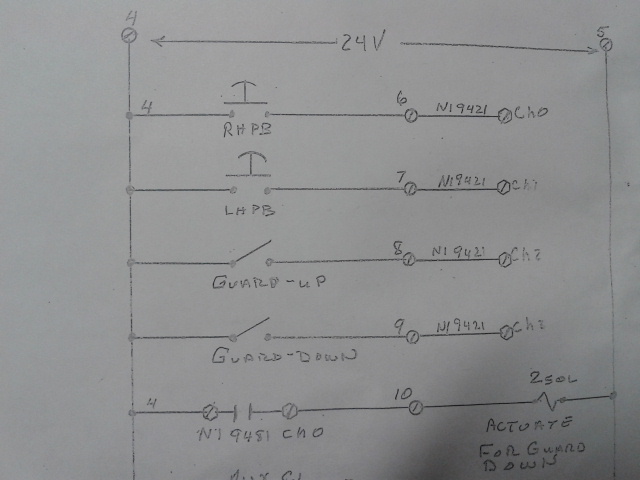 4
24V
5
4
6
NI 9421
Ch0
RHPB
7
NI 9421
Ch1
LHPB
8
NI 9421
Ch2
GUARD-UP
9
NI 9421
GUARD-DOWN
4
10
2SOL
NI 9481 Ch0
ACTUATE
FOR GUARD
DOWN